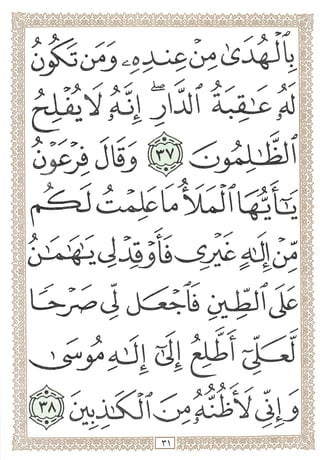 بِٱلْهُدَىٰ مِنْ عِندِهِۦ وَمَن تَكُونُ
لَهُۥ عَـٰقِبَةُ ٱلدَّارِ ۖ إِنَّهُۥ لَا يُفْلِحُ
ٱلظَّـٰلِمُونَ ٣٧ وَقَالَ فِرْعَوْنُ
يَـٰٓأَيُّهَا ٱلْمَلَأُ مَا عَلِمْتُ لَكُم
مِّنْ إِلَـٰهٍ غَيْرِى فَأَوْقِدْ لِى يَـٰهَـٰمَـٰنُ
عَلَى ٱلطِّينِ فَٱجْعَل لِّى صَرْحًا
لَّعَلِّىٓ أَطَّلِعُ إِلَىٰٓ إِلَـٰهِ مُوسَىٰ
وَإِنِّى لَأَظُنُّهُۥ مِنَ ٱلْكَـٰذِبِينَ ٣٨
٣١